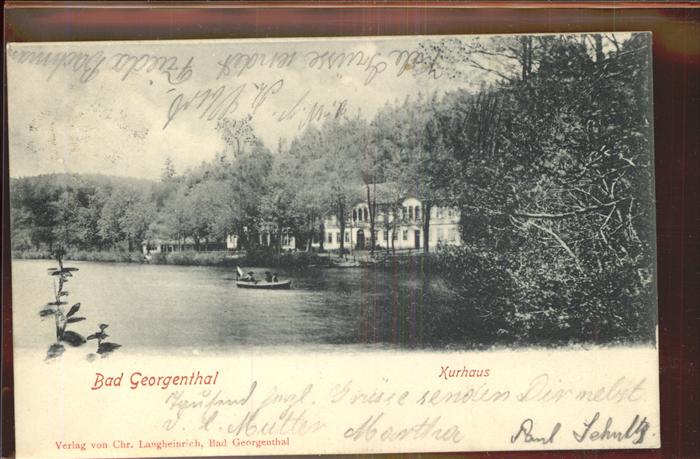 Frieda Bachmann
sendet Grüsse
Bad Georgenthal
Kurhaus
Tausend herzl. Grüsse senden Dir nebst
d. l. Mutter Martha Paul Schultz
Verlag von Chr. Langheinrich, Bad Georgenthal